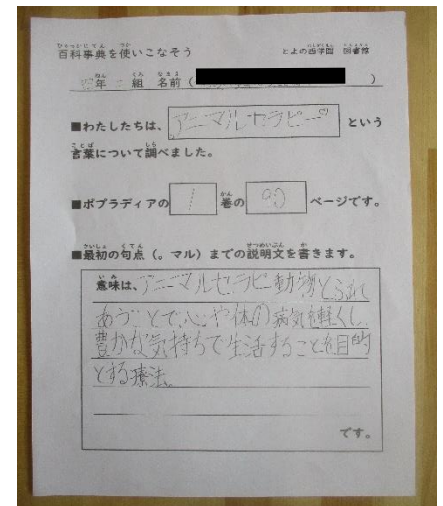 百科事典を使いこなそう
とよの西学園 図書館
年 組 名前( )
■わたしたちは、アニマルセラピー という
言葉について調べました。
■ポプラディアの 1 巻の 90 ページです。
■最初の句点(。マル)までの説明文を書きます。
意味は、アニマルセラピー動物とふれ
あうことで、心や体の病気を軽くし、
豊かな気持ちで生活することを目的
とする療法。
です。